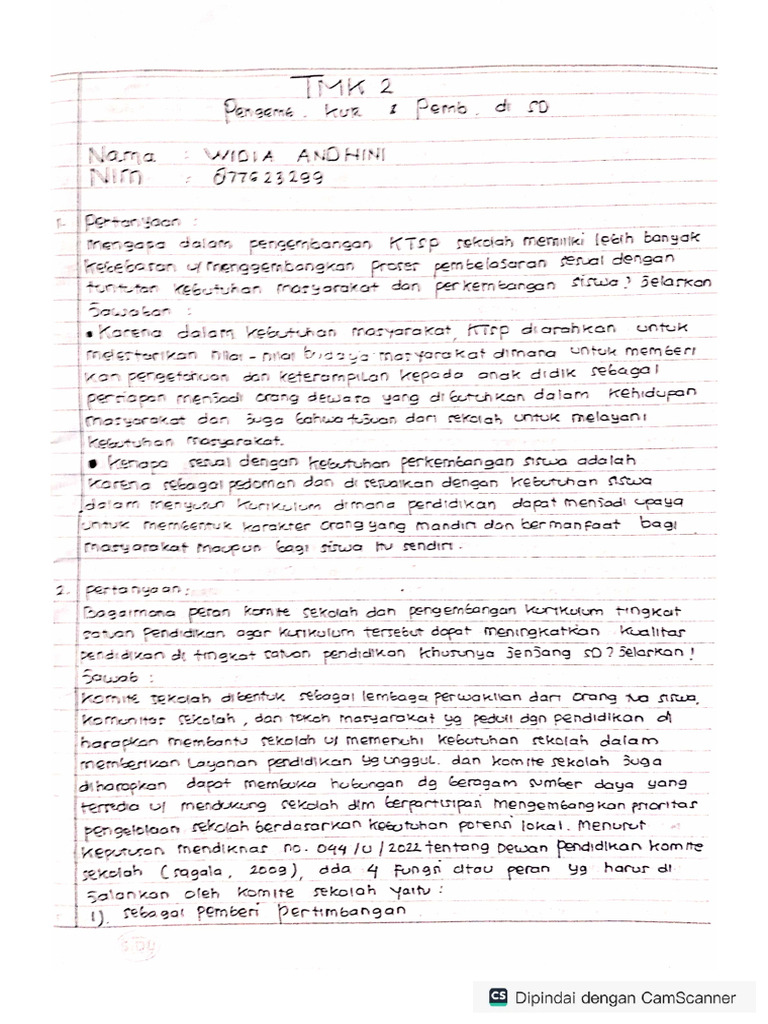 TMK 2
Pengemb. Kur & Pemb. di SD
Nama : WIDIA ANDHINI
Nim : 877623299
1. Pertanyaan :
Mengapa dalam pengembangan KTSP sekolah memiliki lebih banyak
kebebasan u/ menggembangkan proses pembelajaran sesuai dengan
tuntutan kebutuhan masyarakat dan perkembangan siswa? Jelaskan
Jawaban :
• Karena dalam kebutuhan masyarakat, KTSP diarahkan untuk
melestarikan nilai - nilai budaya masyarakat dimana untuk memberi
kan pengetahuan dan keterampilan kepada anak didik sebagai
persiapan menjadi orang dewasa yang dibutuhkan dalam kehidupan
masyarakat dan juga bahwa tujuan dari sekolah untuk melayani
kebutuhan masyarakat.
• Kenapa sesuai dengan kebutuhan perkembangan siswa adalah
karena sebagai pedoman dan di sesuaikan dengan kebutuhan siswa
dalam menyusun kurikulum dimana pendidikan dapat menjadi upaya
untuk membentuk karakter orang yang mandiri dan bermanfaat bagi
masyarakat maupun bagi siswa itu sendiri.
2. Pertanyaan :
Bagaimana peran komite sekolah dan pengembangan kurikulum tingkat
satuan pendidikan agar kurikulum tersebut dapat meningkatkan kualitas
pendidikan di tingkat satuan pendidikan khusunya jenjang SD? Jelaskan!
Jawab :
Komite sekolah dibentuk sebagai lembaga perwakilan dari orang tua siswa,
komunitas sekolah, dan tokoh masyarakat yg peduli dgn pendidikan di
harapkan membantu sekolah u/ memenuhi kebutuhan sekolah dalam
memberikan layanan pendidikan yg unggul. dan komite sekolah juga
diharapkan dapat membuka hubungan dg beragam sumber daya yang
tersedia u/ mendukung sekolah dlm berpartisipasi mengembangkan prioritas
pengelolaan sekolah berdasarkan kebutuhan potensi lokal. Menurut
keputusan mendiknas no. 044/U/2022 tentang Dewan pendidikan komite
sekolah (sagala, 2009), ada 4 fungsi atau peran yg harus di
jalankan oleh komite sekolah yaitu :
1). sebagai pemberi pertimbangan
CS Dipindai dengan CamScanner